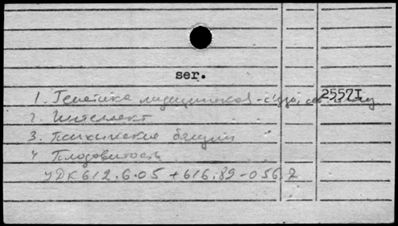 ser.
1. Генетика медицинская -
25571
2. Интеллект
3. Психические
4 Плодовитость
УДК 612.6.05 + 616.89-056.7